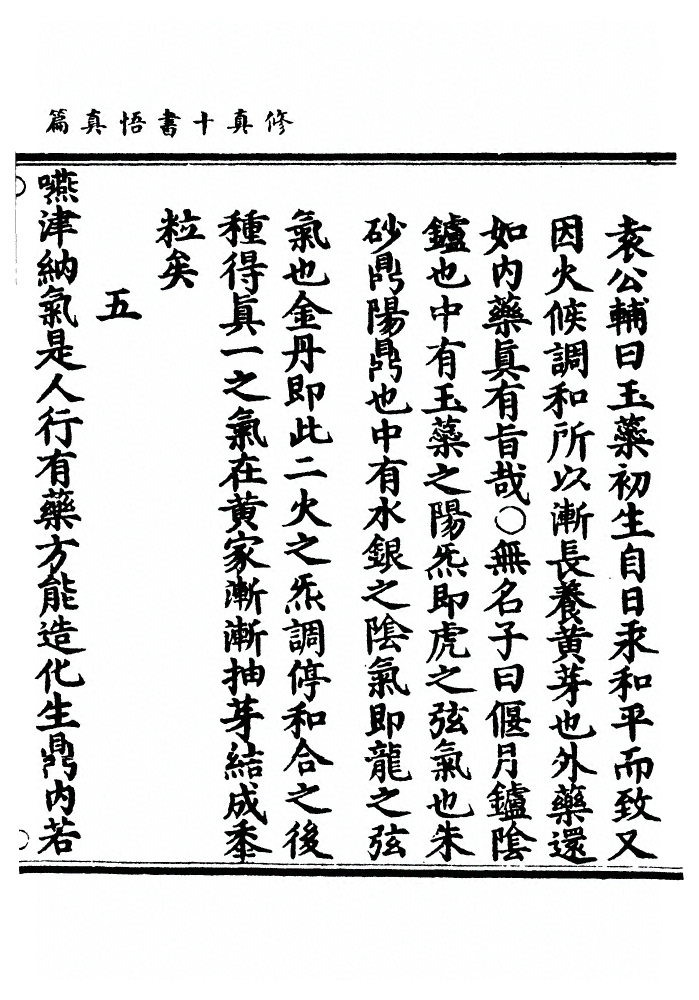 修真十書悟真篇
袁公輔曰玉藥初生自日汞和平而致又
因火候調和所以漸長養黃芽也外藥還
如內藥眞有旨哉○無名子曰偃月鑪陰
鑪也中有玉蘂之陽炁即虎之弦氣也朱
砂鼎陽鼎也中有水銀之陰氣即龍之弦
氣也金丹即此二火之炁調停和合之後
種得眞一之氣在黃家漸漸抽芽結成黍
粒矣
五
嚥津納氣是人行有藥方能造化生鼎內若